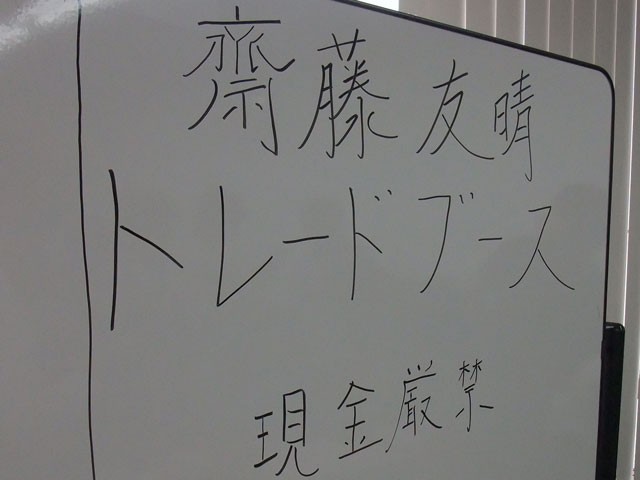 齋藤友晴
トレードブース
現金厳禁